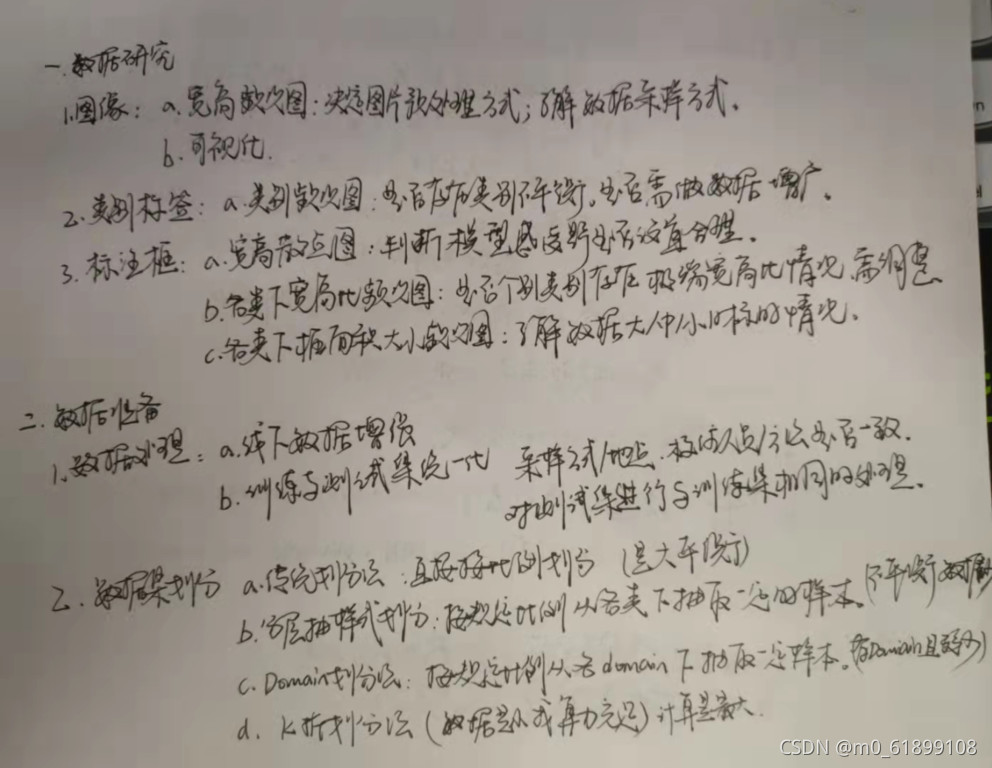 一.数据研究
1.图像：a.宽高频次图：决定图片预处理方式；了解数据采样方式。
b.可视化.
2.类别标签：a.类别频次图：是否存在类别不平衡。是否需做数据增广。
3.标注框：a.宽高散点图：判断模型感受野是否设置合理。
b.各类下宽高比频次图：是否个别类别存在极端宽高比情况，需调整
c.各类下框面积大小频次图：了解数据大中小目标的情况。
二.数据准备
1.数据处理：a.线下数据增强
b.训练与测试集统一化 采样方式/地点、人员/方法是否一致.
对测试集进行与训练集相同的处理。
2.数据集划分 a.传统划分法：直接按比例划分（量大平衡）
b.分层抽样式划分：按规定比例从各类下抽取一定的样本。（不平衡数据
c.Domain划分法：按规定比例从各domain下抽取一定样本。有Domain且
d.K折划分法（数据量小或算力充足）计算量最大.
CSDN @m0_61899108